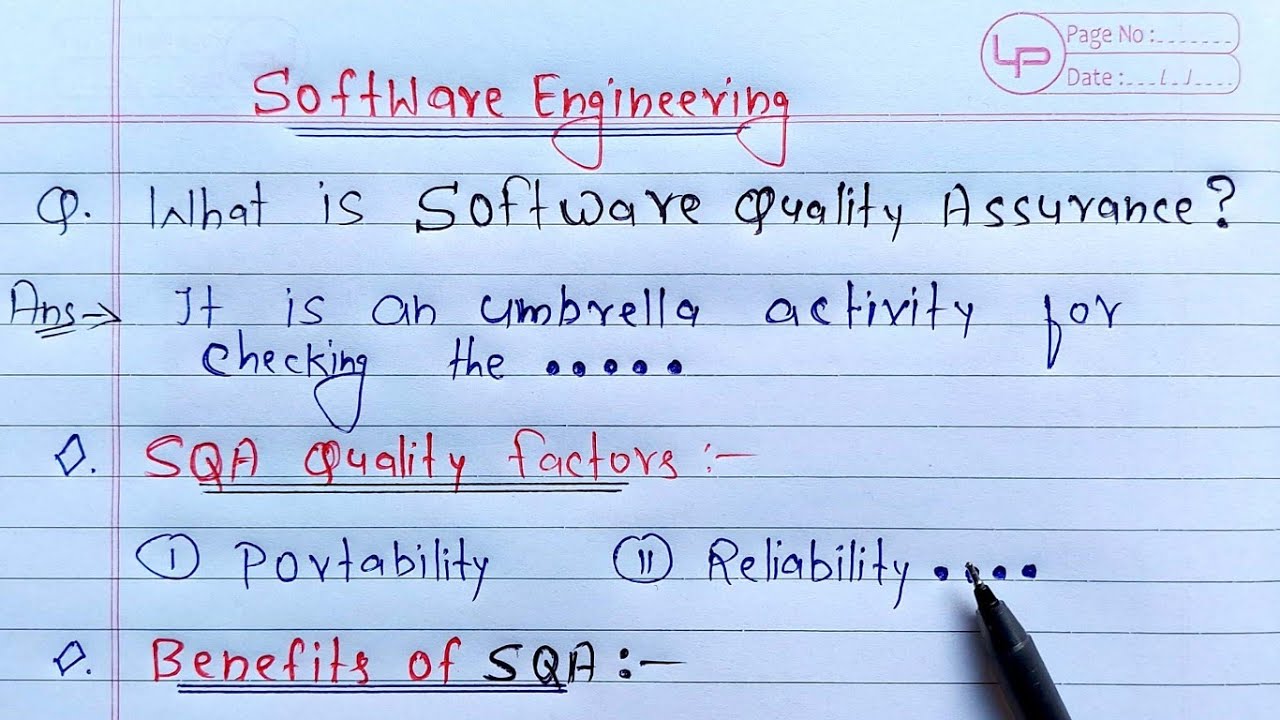 LP
Page No :_ _ _ _ _ _ _
Date :_ _ _ / _ / _ _ _ _
Software Engineering
Q. What is Software Quality Assurance?
Ans→ It is an umbrella activity for
checking the •••••
◇. SQA Quality factors :–
Ⓘ Portability Ⓘⓘ Reliability ••••
◇. Benefits of SQA :–